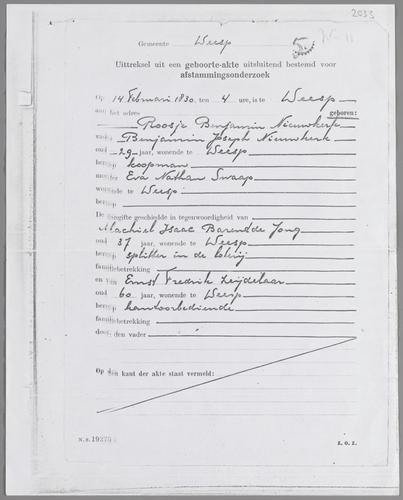 2033
Gemeente Weesp
5.
Uittreksel uit een geboorte-akte uitsluitend bestemd voor
afstammingsonderzoek
Op 14 Februari 1830 ten 4 ure, is te Weesp
aan het adres geboren:
Roosje Benjamin Nieuwkerk
vader Benjamin Joseph Nieuwkerk
oud 29 jaar, wonende te Weesp
beroep koopman
moeder Eva Nathan Swaap
wonende te Weesp
beroep
De aangifte geschiedde in tegenwoordigheid van
Machiel Isaac Barend de Jong
oud 37 jaar, wonende te Weesp
beroep splitter in de loterij
familiebetrekking
en van Ernst Fredrik Zeijdelaar
oud 60 jaar, wonende te Weesp
beroep kantoorbediende
familiebetrekking
door den vader
Op den kant der akte staat vermeld:
N.S. 19376
Z.O.Z.